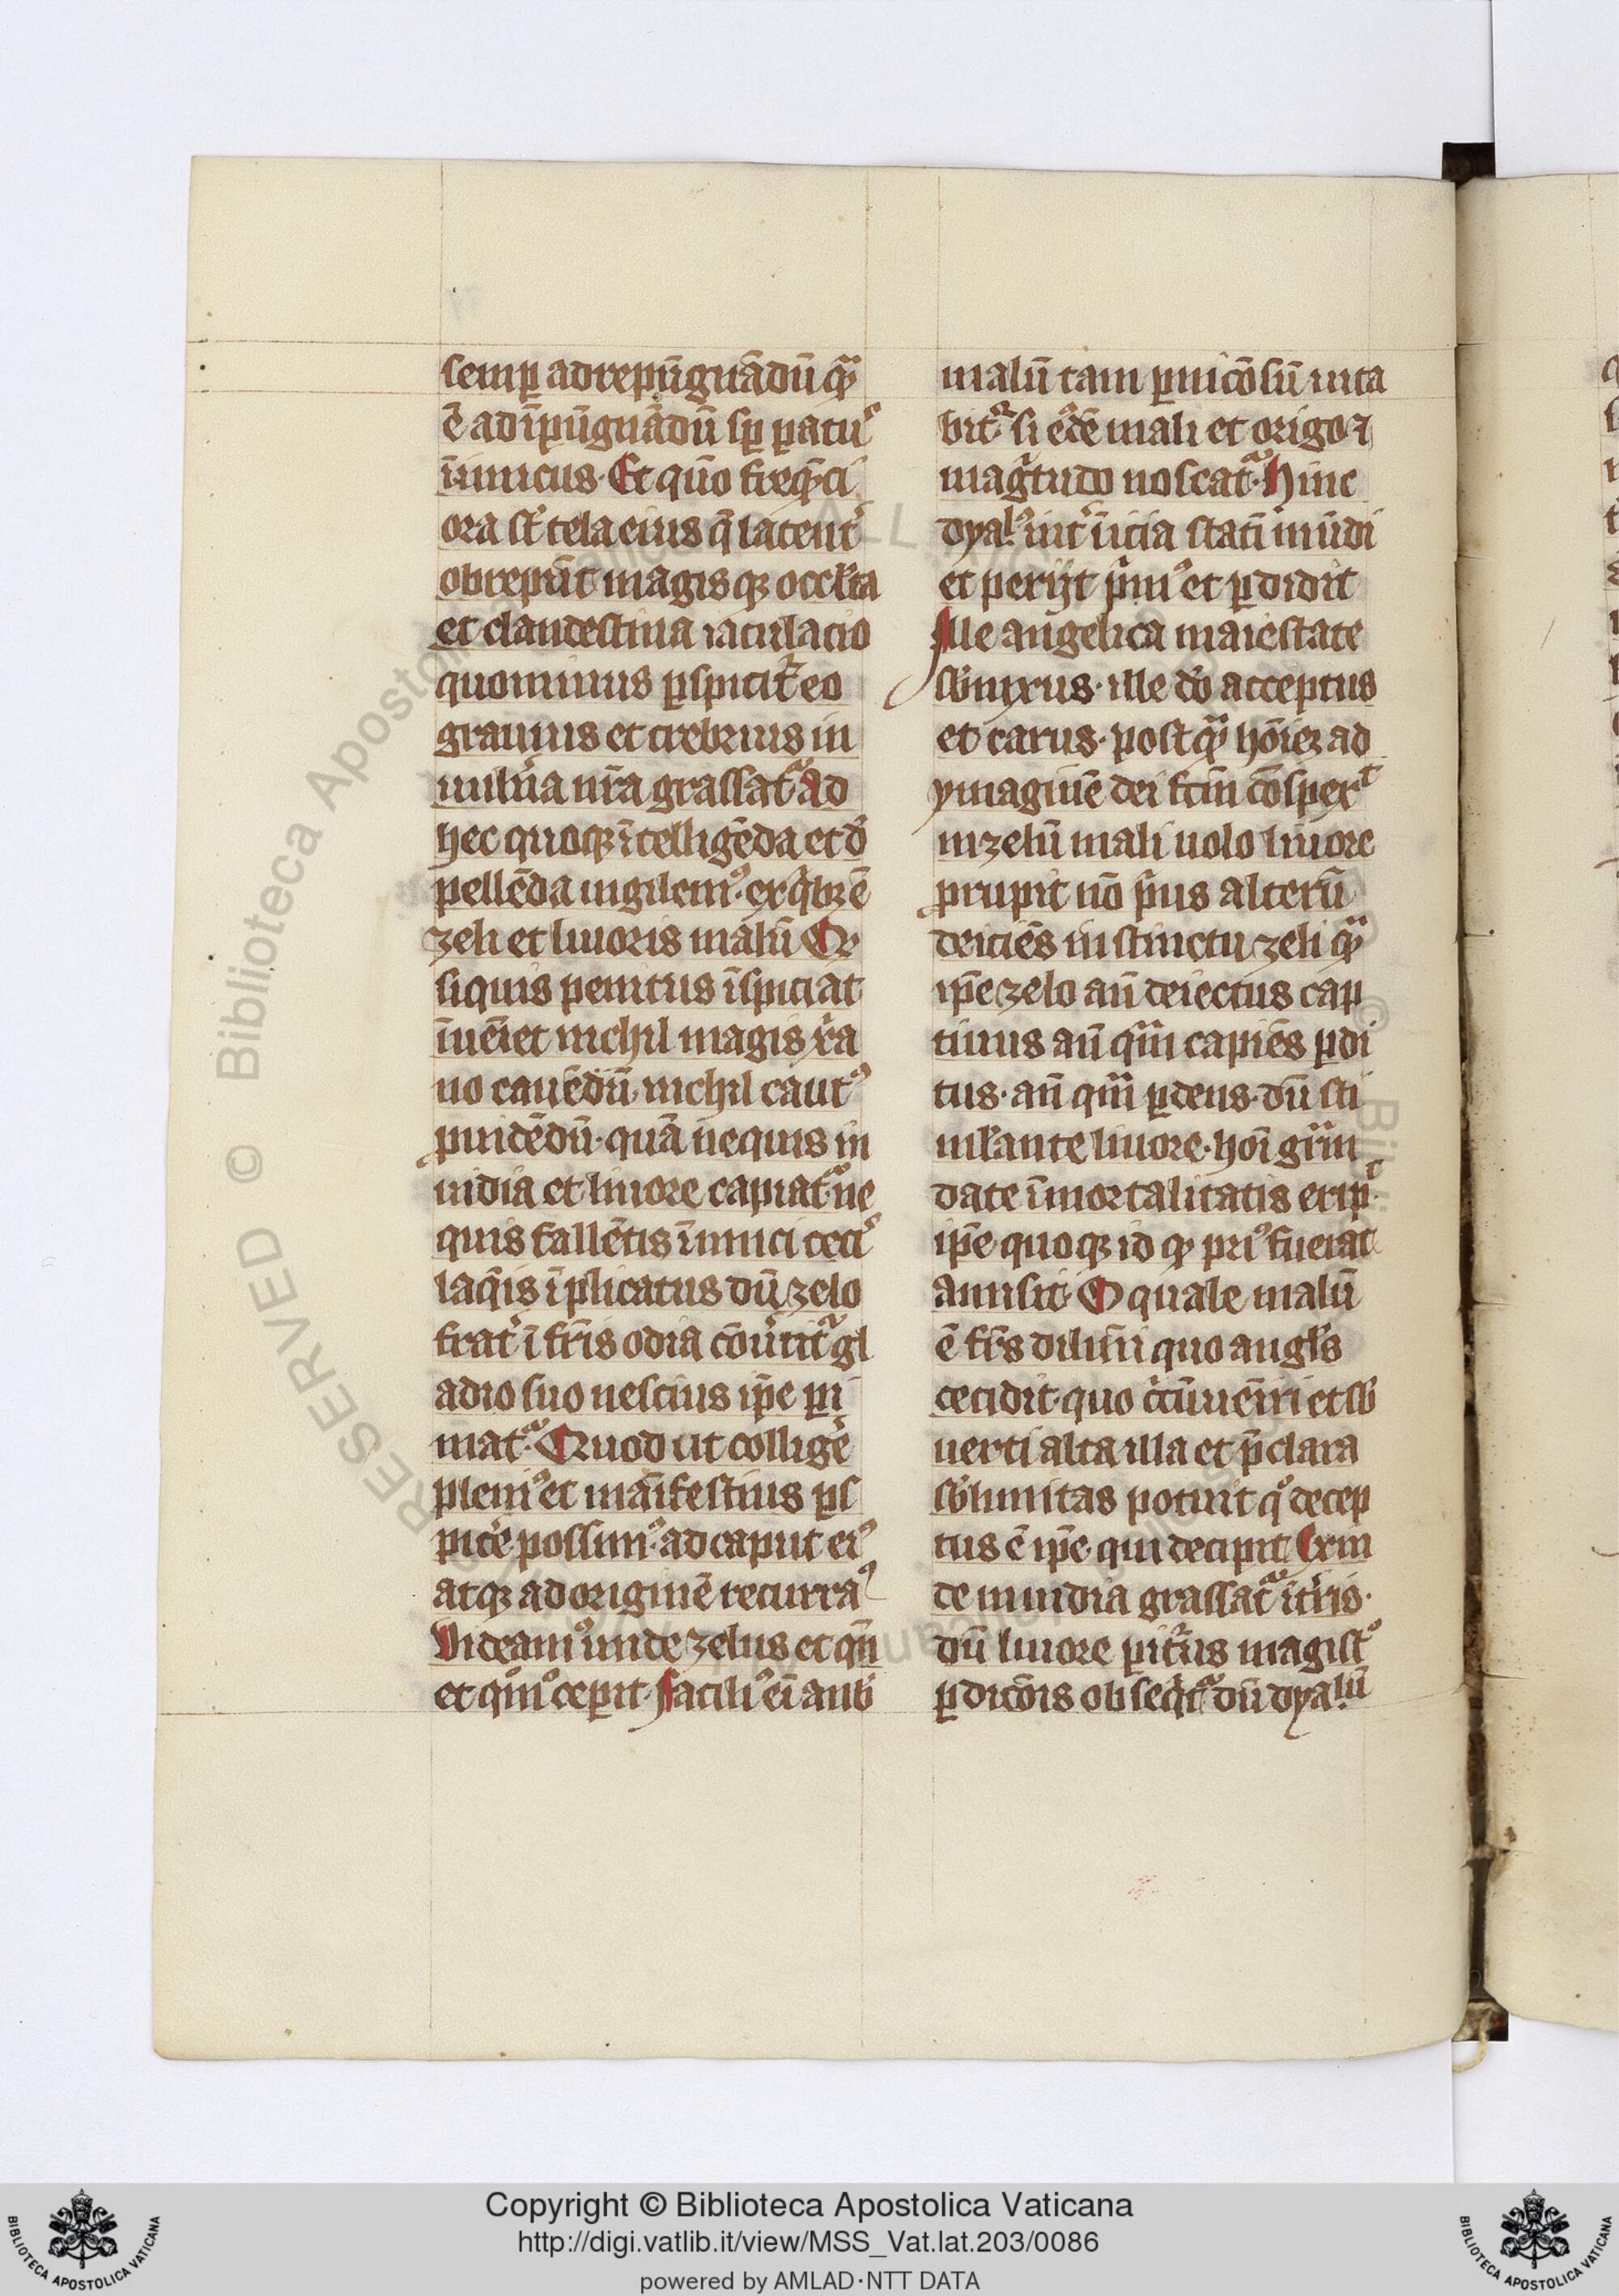 semꝑ ad repūgnādū qͣꝫ
ē ad īpūgnādū sꝑ patuˢ
īimicus· Et qn̄o freqn̄ci
ora st̾ tela eius q̄ latent̾
obrepūt magisqꝫ occl̾ta
et clandestina iaculacio
quo minus ꝑspicit̾ eo
grauius et crebrius in
uuln̾a nr̄a grassat᷑ ad
hec quoqꝫ ītelligēda et d̾
pellēda uigilem᾽· ex qͥbꝫ ē
zeli et liuoris malū Qꝫ
si quis penitus īspiciat
īueīet nichil magis xͣ̄a
no cauēdū nichil caut᾽
ꝓuidēdū· quā ne quis in
uidia et liuore capiat᷑ ne
quis fallētis īimici ceciˢ
laqͥs īplicatus dū zelo
frat̾ ī fr̄is odia cōu̾tit᷑ gl
adio suo nescius ip̄e ꝑi
mat᷑· Quod ut collige̾
pleni᾽ et māifestius ꝑs
pice̾ possim᾽ ad caput ei᾽
atqꝫ ad originē recurra᾽
Videam᾽ unde zelus et qn̄
et qͦm̊ ceꝑit· facili᾽ ei̅ a nob̾
malū tam ꝑnicōsū uita
bit᷑ si e᾽dē mali et origo ⁊
magͥtudo noscat᷑· Hinc
dyal᾽ int̾ īicia stati mūdi
et perijt pͥm᾽ et ꝑdidit
Ille angelica maiestate
sb̾nixus· ille dō acceptus
et carus· postqͣꝫ hōiēꝫ ad
ymaginē dei fc̄m cōspexᵗ
in zelū maliuolo liuore
ꝓrupit nō pͥus alterū
deiciēs instinctu zeli qͣꝫ
ip̄e zelo an̄ deiectus cap
tiuus an̄ qͣm capiēs ꝑdi
tus· an̄ qͣm ꝑdens· dū sti
ml̾ante liuore· hoī gr̄am
date īmortalitatis eripᵗ·
ip̄e quoqꝫ id qꝫ pri᾽ fuerat
amisit· O quale malū
ē fr̄s dil̄mi quo angl̾s
cecidit· quo cͥcūueīri et sb̾
uerti alta illa et p̄clara
sb̾limitas potuit qͦ decep
tus ē ip̄e· qui decipit Exin
de inuidia grassat᷑ ī t̾ris·
dū liuore ꝑit᷑us magistᵒ
ꝑdicōis obseqͥt᷑ dū dyalū
Copyright © Biblioteca Apostolica Vaticana
http://digi.vatlib.it/view/MSS_Vat.lat.203/0086
powered by AMLAD·NTT DATA